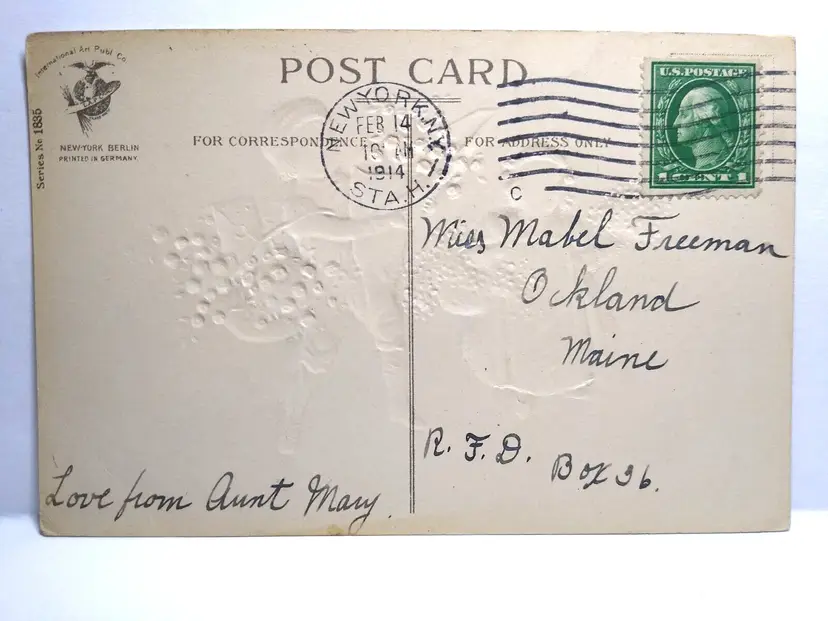 International Art Publ. Co.
Series No 1835
NEW-YORK BERLIN
PRINTED IN GERMANY.
POST CARD
FOR CORRESPONDENCE
FOR ADDRESS ONLY
NEW YORK, N.Y.
FEB 14
10 AM
1914
STA. H.
1
C
U.S. POSTAGE
1 CENT 1
Miss Mabel Freeman
Ockland
Maine
R. F. D. Box 36.
Love from Aunt Mary.